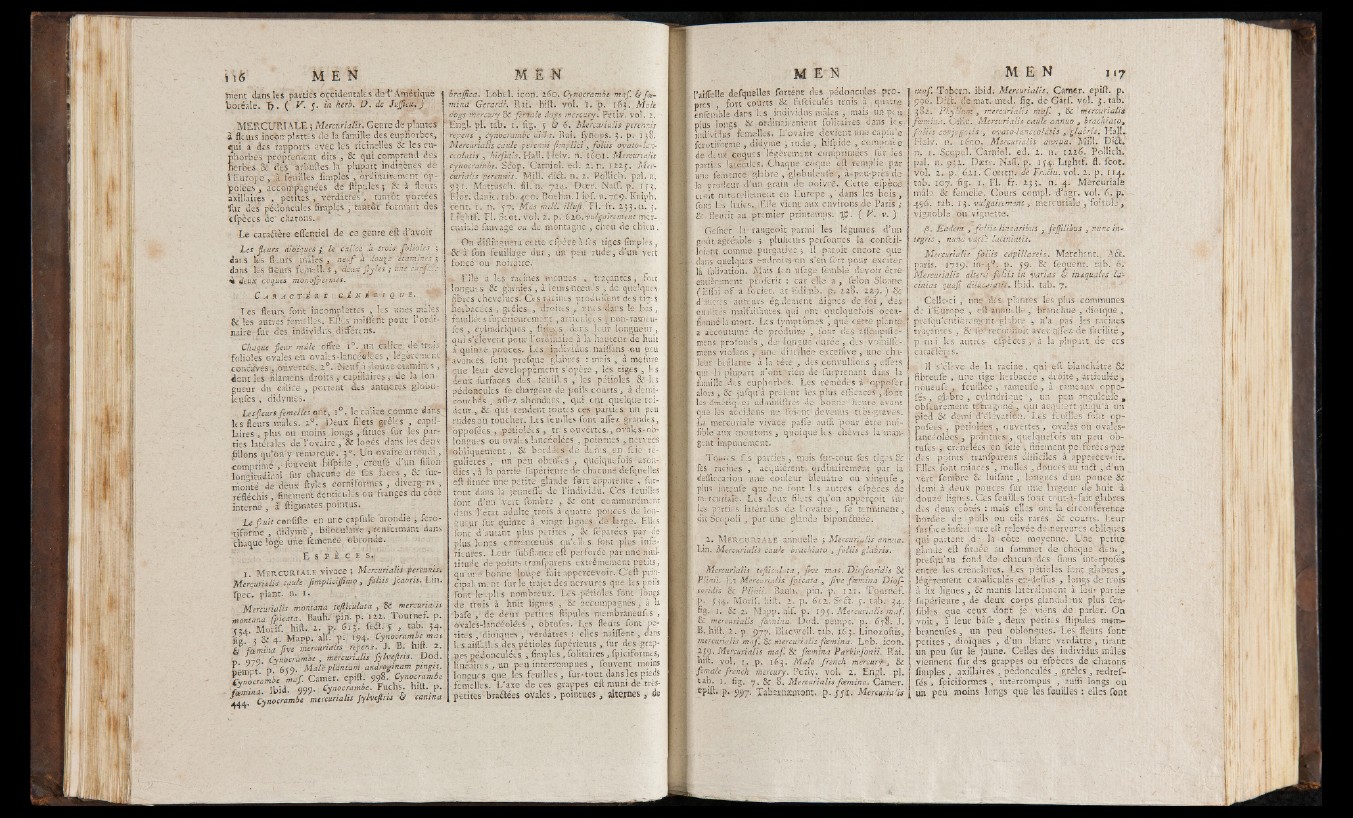 116 MEN MEN
ment dans les parties occidentales de l'Amérique
boréale. ♄. ( V. ſ. in herb. D. de Juſſieu. )
MERCURIALE ; Mercurialis. Genre de plantes
à fleurs incomplettes de la famille des euphorbes,
qui a des rapports avec les ricinelles & les eu-
phorbes proprement dits, & qui comprend des
herbes & des arbuſtes la plupart indigènes de
l'Europe, à feuilles ſimples, ordinairement op-
poſées, accompagnées de ſtipules ; & à fleurs
axillaires, petites, verdâtres, tantôt portées
ſur des pédoncules ſimples, tantôt formant des
eſpèces de chatons.
Le caractère eſſentiel de ce genre eſt d'avoir
Les fleurs dioïques ; le calice à trois folioles ;
dans les fleurs mâles, neuf à douze étamines ;
dans les fleurs femelles, deux ſtyles ; une capſule
à deux coques monoſpermes.
CARACTERE GÉNÉRIQUE.
Les fleurs ſont incomplettes, les unes mâles
& les autres femelles. Elles naiſſent pour l'ordi-
naire ſur des individus différens.
Chaque fleur mâle offre 1°. un calice de trois
folioles ovales ou ovales-lancéolées, légèrement
concaves, ouvertes. 2°. Neuf à douze étamines,
dont les filamens droits, capillaires, de la lon-
gueur du calice, portent des anthères globu-
leuſes, didymes.
Les fleurs femelles ont, 1°. le calice comme dans
les fleurs mâles. 2°. Deux filets grêles, capil-
laires, plus ou moins longs, ſitués ſur les par-
ties latérales de l'ovaire, & logés dans les deux
ſillons qu'on y remarque. 3°. Un ovaire arrondi,
comprimé, ſouvent hiſpide, creuſé d'un ſillon
longitudinal ſur chacune de ſes faces, & ſur-
monté de deux ſtyles corniformes, divergens,
réfléchis, finement denticulés ou frangés du côté
interne, à ſtigmates pointus.
Le fruit conſiſte en une capſule arrondie, ſcro-
tiforme, didyme, biloculaire, renfermant dans
chaque loge une ſemence obronde.
ESPÈCES.
1. MERCURIALE vivace ; Mercurialis perennis.
Mercurialis caule ſimpliciſſimo, foliis ſcabris. Lin.
ſpec. plant. n. 1.
Mercurialis montana teſticulata, & mercurialis
montana ſpicata. Bauh. pin. p. 122. Tournef. p.
534. Moriſ. hiſt. 2. p. 613. ſect. 5, tab. 34.
fig. 3 & 4. Mapp. alſ. p. 194. Cynocrambe mas
& fœmina ſive mercurialis repens. J. B. hiſt. 2.
p. 979. Cynocrambe, mercurialis ſylveſtris. Dod.
pempt. p. 659. Malè plantam androginam pingit.
Cynocrambe maſ. Camer. epiſt. 998. Cynocrambe
fœmina. Ibid. 999. Cynocrambe. Fuchs. hiſt. p.
444. Cynocrambe mercurialis ſylveſtris & canina
braſſica. Lobel. icon. 260. Cynocrambe maſ. & fœ-
mina Gerardi. Rai. hiſt. vol. 1. p. 163. Male
dogs mercury & female dogs mercury. Petiv. vol. 2.
Engl. pl. tab. 1. fig. 5 & 6. Mercurialis perennis
repens ; cynocrambe dicta. Rai. ſynopſ. 3. p. 138.
Mercurialis caule perenni ſimplici, foliis ovato-lan-
ceolatis, hirſutis. Hall. Helv. n. 1601. Mercurialis
cynocrambe. Scop. Carniol. ed. 2. n. 1225. Mer-
curialis perennis. Mill. dict. n. 2. Pollich. pal. n.
931. Mattuſch. ſil. n. 724. Dœrr. Naſſ. p. 153.
Flor. danic. tab. 400. Boehm. Lipſ. n. 709. Kniph.
cent. 1. n. 57. Mas mill. illuſt. Fl. fr. 233. n. 3.
Lightf. Fl. Scot. vol. 2. p. 620. vulgairement mer-
curiale ſauvage ou de montagne, chou de chien.
On diſtinguera cette eſpèce à ſes tiges ſimples,
& à ſon feuillage dur, un peu rude, d'un vert
foncé ou noirâtre.
Elle a les racines menues, traçantes, fort
longues & garnies, à leurs nœuds, de quelques
fibres chevelues. Ces racines produiſent des tiges
herbacées, grêles, droites, nues dans le bas,
feuillées ſupérieurement, articulées, non-rameu-
ſes, cylindriques, dans leur longueur,
qui s'élèvent pour l'ordinaire à la hauteur de huit
à quinze pouces. Les individus naiſſans ou peu
avancés ſont preſque glabres : mais, à meſure
que leur développement s'opère, les tiges, les
deux ſurfaces des feuilles, les pétioles & les
pédoncules ſe chargent de poils courts, à demi-
couchés, aſſez abondans, qui ont quelque roi-
deur, & qui rendent toutes ces parties un peu
rudes au toucher. Les feuilles ſont aſſez grandes,
oppoſées, pétiolées, très ouvertes, ovales-ob-
longues ou ovales lancéolées, pointues, nervées
obliquement, & bordées de dents en ſcie ré-
gulières, un peu obtuſes, quelquefois arron-
dies, à la partie ſupérieure de chacune deſquelles
eſt ſituée une petite glande fort apparente, ſur-
tout dans la jeuneſſe de l'individu. Ces feuilles
ſont d'un vert ſombre, & ont communément
dans l'état adulte trois à quatre pouces de lon-
gueur ſur quinze à vingt lignes de large. Elles
ſont d'autant plus petites, & ſéparées par de
plus longs entrenœuds qu'elles ſont plus infé-
rieures. Leur ſubſtance eſt perforée par une mul-
titude de points tranſparens extrêmement petits,
qu'une bonne loupe fait appercevoir. C'eſt prin-
cipalement ſur le trajet des nervures que les poils
ſont les plus nombreux. Les pétioles ſont longs
de trois à huit lignes, & accompagnés, à la
baſe, de deux petites ſtipules membraneuſes,
ovales-lancéolées, obtuſes. Les fleurs ſont pe-
tites, dioïques, verdâtres : elles naiſſent, dans
les aiſſelles des pétioles ſupérieurs, ſur des grap-
pes pédonculées, ſimples, ſolitaires, ſpiciformes,
linéaires, un peu interrompues, ſouvent moins
longues que les feuilles, ſur-tout dans les pieds
femelles. L'axe de ces grappes eſt muni de très-
petites bractées ovales, pointues, alternes, de
MEN MEN 117
l'aiſſelle deſquelles ſortent des pédoncules pro-
pres, fort courts & faſciculés trois à quatre
enſemble dans les individus mâles, mais un peu
plus longs & ordinairement ſolitaires dans les
individus femelles. L'ovaire devient une capſule
ſcrotiforme, didyme, rude, hiſpide, compoſée
de deux coques légèrement comprimées ſur les
parties latérales. Chaque coque eſt remplie par
une ſemence glabre, globuleuſe, à-peu-près de
la groſſeur d'un grain de poivre. Cette eſpèce
croît naturellement en Europe, dans les bois,
ſous les haies. Elle vient aux environs de Paris ;
& fleurit au premier printemps. ♃. ( V. v. )
Geſner la rangeoit parmi les légumes d'un
goût agréable ; pluſieurs perſonnes la conſeil-
loient comme purgative ; il paroît encore que
dans quelques endroits on s'en ſert pour exciter
la ſalivation. Mais ſon uſage ſemble devoir être
entièrement proſcrit : car elle a, ſelon Sloane
( Eſſai of a ſociet. at Edimb. p. 126. 229. ) &
d'autres auteurs également dignes de foi, des
qualités malfaiſantes, qui ont quelquefois occa-
ſionné la mort. Les ſymptômes, que cette plante
a accoutumé de produire, ſont des aſſoupiſſe-
mens profonds, de longue durée, des vomiſſe-
mens violens, une diarrhée exceſſive, une cha-
leur brûlante à la tête, des convulſions, effets
que la plupart n'ont rien de ſurprenant dans la
famille des euphorbes. Les remèdes à oppoſer
alors, & juſqu'à préſent les plus efficaces, ſont
les émétiques adminiſtrés de bonne heure avant
que les accidens ne ſoient devenus très-graves.
La mercuriale vivace paſſe auſſi pour être nui-
ſible aux moutons, quoique les chèvres la man-
gent impunément.
Toutes ſes parties, mais ſur-tout ſes tiges &
ſes racines, acquièrent ordinairement par la
deſſiccation une couleur bleuâtre ou vineuſe,
plus intenſe que ne ſont les autres eſpèces de
mercuriale. Les deux filets qu'on apperçoit ſur
les parties latérales de l'ovaire, ſe terminent,
dit Scopoli, par une glande bipommée.
2. MERCURIALE annuelle ; Mercurialis annua.
Lin. Mercurialis caule brachiato, foliis glabris.
Mercurialis teſticulata, ſive mas. Dioſcoridis &
Plinii. Et Mercurialis ſpicata, ſive fœmina Dioſ-
coridis & Plinii. Bauh. pin. p. 121. Tournef.
p. 534. Moriſ. hiſt. 2. p. 612. Sect. 5. tab. 34.
fig. 1. & 2. Mapp. alſ. p. 193. Mercurialis maſ.
& mercurialis fœmina. Dod. pempt. p. 658. J.
B. hiſt. 2. p. 977. Blacwell. tab. 163. Linozoſtis,
mercurialis maſ. & mercurialis fœmina. Lob. icon.
259. Mercurialis maſ. & fœmina Parkinſonii. Rai.
hiſt. vol. 1. p. 163. Male french mercury, &
female french mercury. Petiv. vol. 2. Engl. pl.
tab. 1. fig. 7. & 8. Mercurialis fœmina. Camer.
epiſt. p. 997. Tabernæmont. p. 554. Mercurialis
maſ. Tabern. ibid. Mercurialis. Camer. epiſt. p.
996. Dict. de mat. med. fig. de Garſ. vol. 3. tab.
382. mercurialis maſ., & mercurialis
fœmina. Cæſalp. Mercurialis caule annuo, brachiato,
foliis conjugatis, ovato-lanceolatis, glabris. Hall.
Helv. n. 1600. Mercurialis annua. Mill. Dict.
n. 1. Scopol. Carniol. ed. 2. n. 1226. Pollich.
pal. n. 932. Dœrr. Naſſ. p. 154. Lightf. fl. ſcot.
vol. 2. p. 621. Gærtn. de Fruct. vol. 2. p. 114.
tab. 107. fig. 1. Fl. fr. 233. n. 4. Mercuriale
mâle & femelle. Cours compl. d'agr. vol. 6. p.
496. tab. 13. vulgairement, mercuriale, foirole,
vignoble ou vignette.
β. Eadem, foliis linearibus, ſeſſilibus, nunc in-
tegris, nunc variè laciniatis.
Mercurialis foliis capillaceis. Marchant. Act.
pariſ. 1719. in-4°. p. 59. & ſequent. tab. 6.
Mercurialis altera foliis in varias & inæquales la-
cinias quaſi dilaceratis. Ibid. tab. 7.
Celle-ci, une des plantes les plus communes
de l'Europe, eſt annuelle, branchue, dioïque,
preſqu'entièrement glabre, n'a pas les racines
traçantes, & ſe reconnoît avec aſſez de facilité,
parmi les autres eſpèces, à la plupart de ces
caractères.
Il s'élève de la racine, qui eſt blanchâtre &
fibreuſe, une tige herbacée, droite, articulée,
noueuſe, feuillée, rameuſe, à rameaux oppo-
ſés, glabre, cylindrique, un peu anguleuſe,
obſcurément tétragone, qui acquiert juſqu'à un
pied & demi d'élévation. Les feuilles ſont op-
poſées, pétiolées, ouvertes, ovales ou ovales-
lancéolées, pointues, quelquefois un peu ob-
tuſes, crénelées en ſcie, finement perforées par
des points tranſparens difficiles à appercevoir.
Elles ſont minces, molles, douces au tact, d'un
vert ſombre & luiſant, longues d'un pouce &
demi à deux pouces ſur une largeur de huit à
douze lignes. Ces feuilles ſont tout-à-fait glabres
des deux côtés : mais elles ont la circonférence
bordée de poils ou cils rares & courts. Leur
ſurface inférieure eſt relevée de nervures obliques
qui partent de la côte moyenne. Une petite
glande eſt ſituée au ſommet de chaque dent,
preſqu'au fond de chacun des ſinus interpoſés
entre les crénelures. Les pétioles ſont glabres,
légèrement canaliculés en-deſſus, longs de trois
à ſix lignes, & munis latéralement à leur partie
ſupérieure, de deux corps glanduleux plus ſen-
ſibles que ceux dont je viens de parler. On
voit, à leur baſe, deux petites ſtipules mem-
braneuſes, un peu oblongues. Les fleurs ſont
petites, dioïques, d'un blanc verdâtre, tirant
un peu ſur le jaune. Celles des individus mâles
viennent ſur des grappes ou eſpèces de chatons
ſimples, axillaires, pédonculés, grêles, redreſ-
ſés, ſpiciformes, interrompus, auſſi longs ou
un peu moins longs que les feuilles : elles ſont